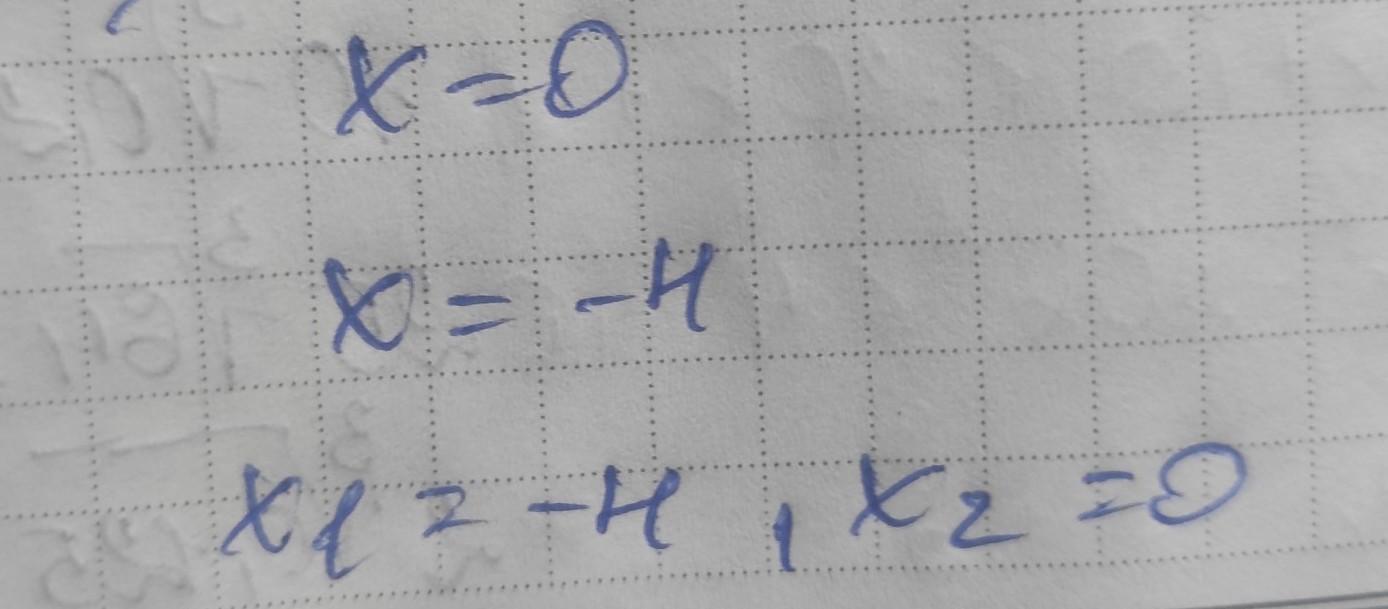 x = 0
x = -4
x1 = -4, x2 = 0